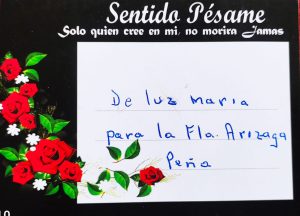 Sentido Pésame
Solo quien cree en mi, no morira Jamas
De luz maria
para la Fla. Arizaga
Peña